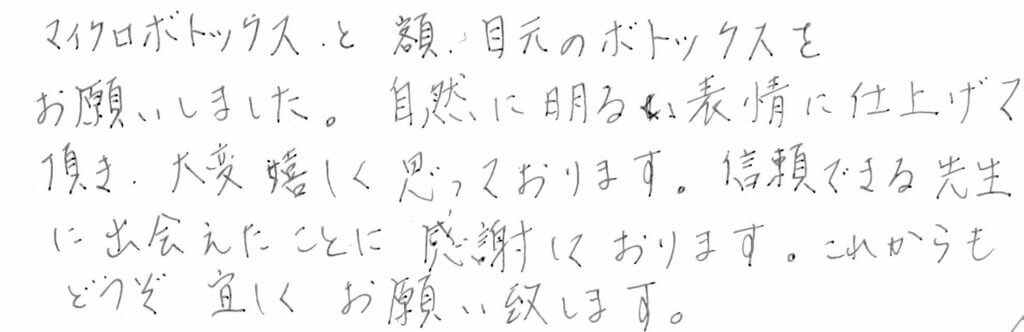 マイクロボトックス、と 額、目元のボトックスを
お願いしました。 自然に明るい表情に仕上げて
頂き、大変嬉しく思っております。信頼できる先生
に出会えたことに感謝しております。これからも
どうぞ宜しくお願い致します。